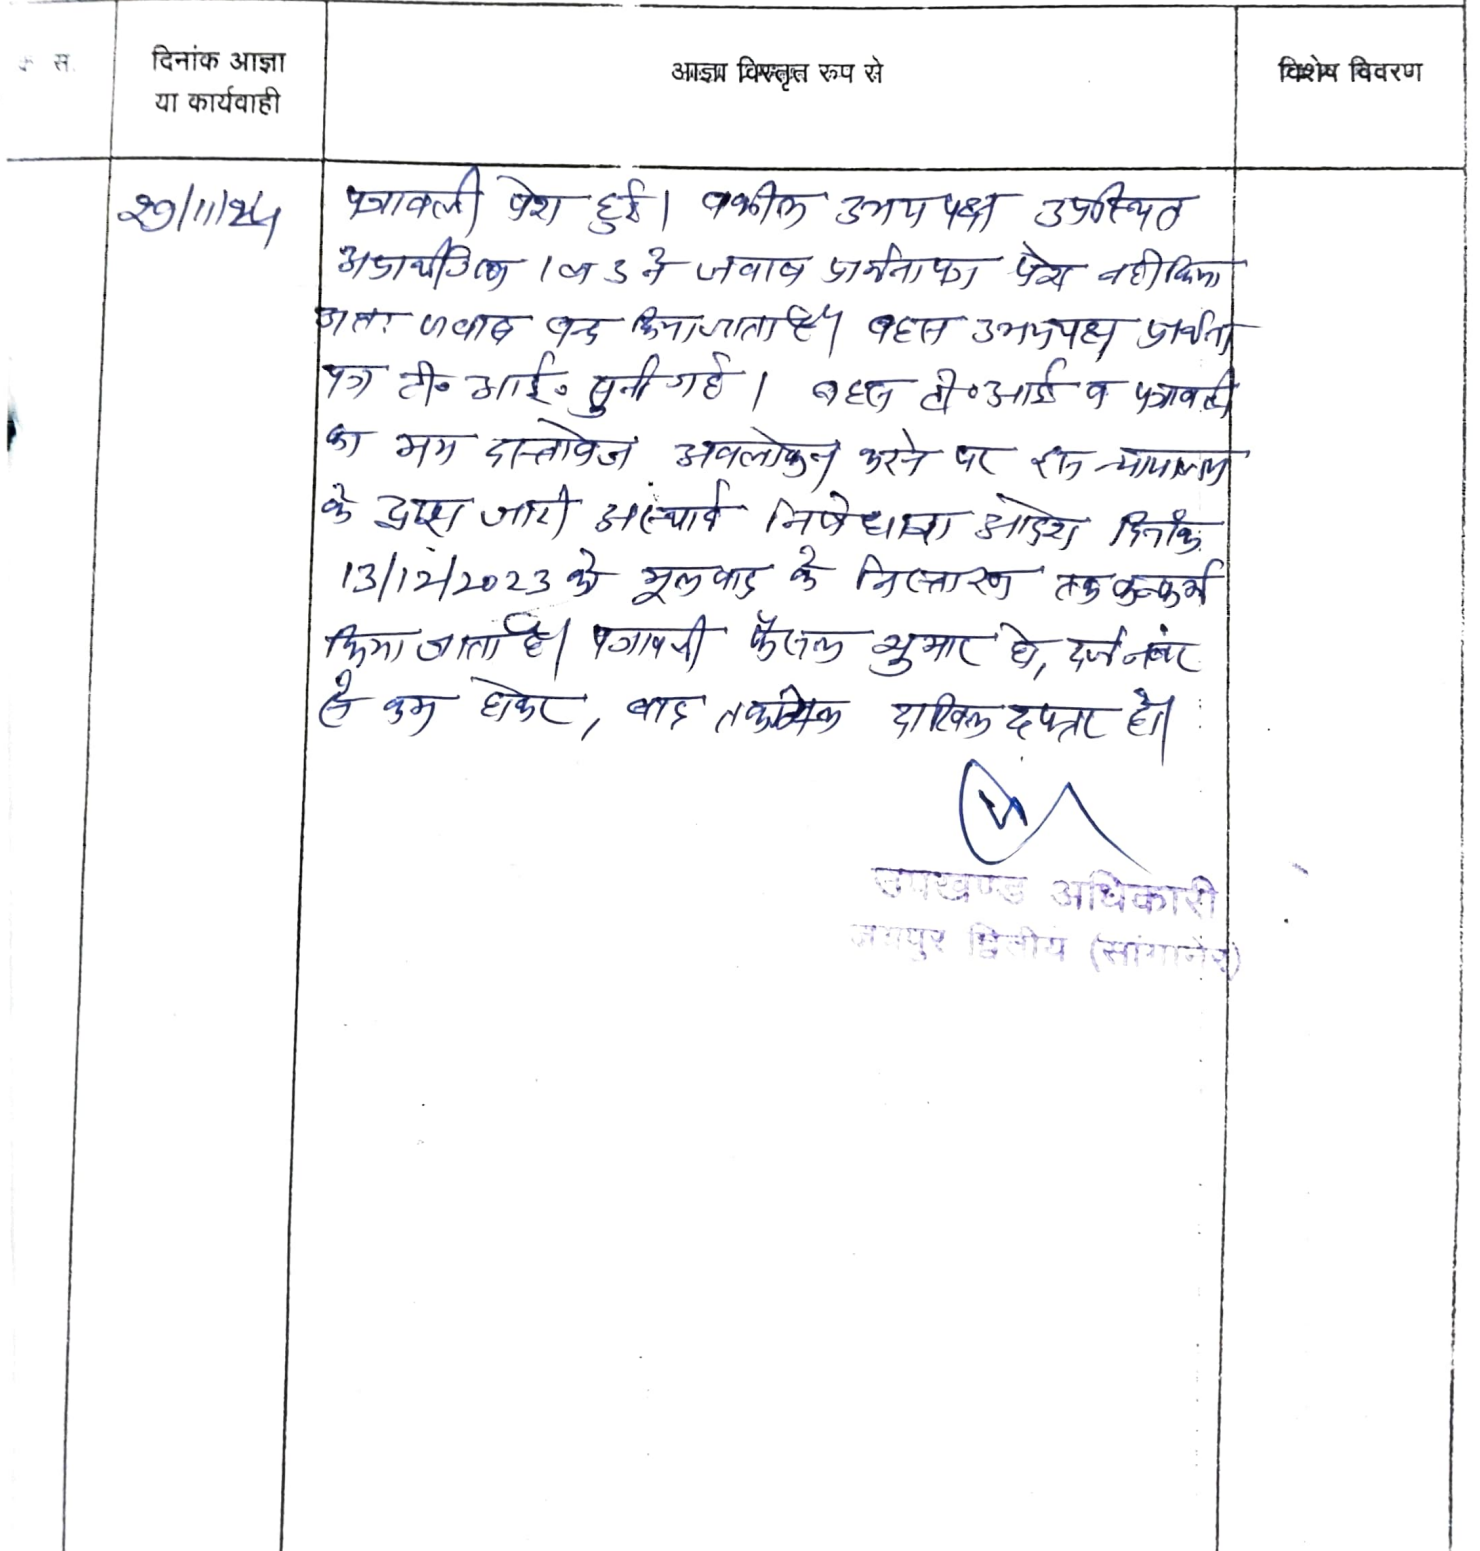 क्र स.
दिनांक आज्ञा
या कार्यवाही
आज्ञा विस्तृत रूप से
विशेष विवरण
पत्रावली पेश हुई। वकील उभयपक्ष उपस्थित
अप्रार्थी 1 व 3 ने जवाब प्रार्थनापत्र पेश नहीं किया
अतः जवाब बन्द किया जाता है। बहस उभयपक्ष प्रार्थना
पत्र टी॰ आई॰ सुनी गई। बहस टी॰आई व पत्रावली
का मय दस्तावेज अवलोकन करने पर इस न्यायालय
के द्वारा जारी अस्थाई निषेधाज्ञा आदेश दिनांक
13/12/2023 को मूलवाद के निस्तारण तक कन्फर्म
किया जाता है। पत्रावली फैसल शुमार हो, दर्ज नंबर
से कम होकर, बाद तकमील दाखिल दफ्तर हो।
उपखण्ड अधिकारी
जयपुर द्वितीय (सांगानेर)